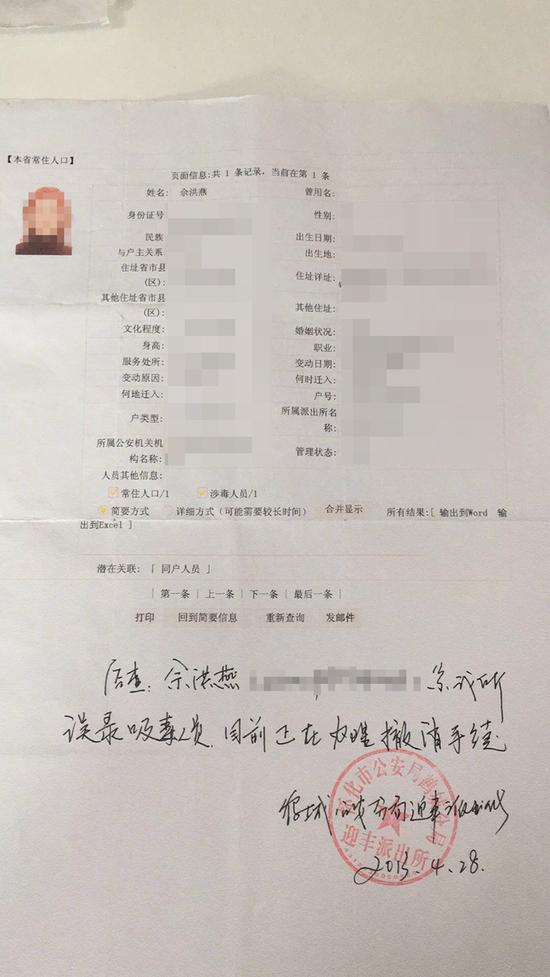 【本省常住人口】
页面信息:共 1 条记录，当前在第 1 条
姓名: 佘洪燕 曾用名:
身份证号 性别:
民族 出生日期:
与户主关系 出生地:
住址省市县(区): 住址详址:
其他住址省市县(区): 其他住址:
文化程度: 婚姻状况:
身高: 职业:
服务处所: 变动日期:
变动原因: 何时迁入:
何地迁入: 户号:
户类型: 所属派出所名称:
所属公安机关机构名称: 管理状态:
人员其他信息:
常住人口/1 涉毒人员/1
简要方式 详细方式（可能需要较长时间） 合并显示 所有结果:[ 输出到Word 输
出到Excel ]
潜在关联: 「 同户人员 」
| 第一条 | 上一条 | 下一条 | 最后一条 |
打印 回到简要信息 重新查询 发邮件
后查: 佘洪燕 系我所
误录吸毒人员. 目前正在办理撤消手续
怀化市公安局鹤城分局
迎丰派出所
2013.4.28.